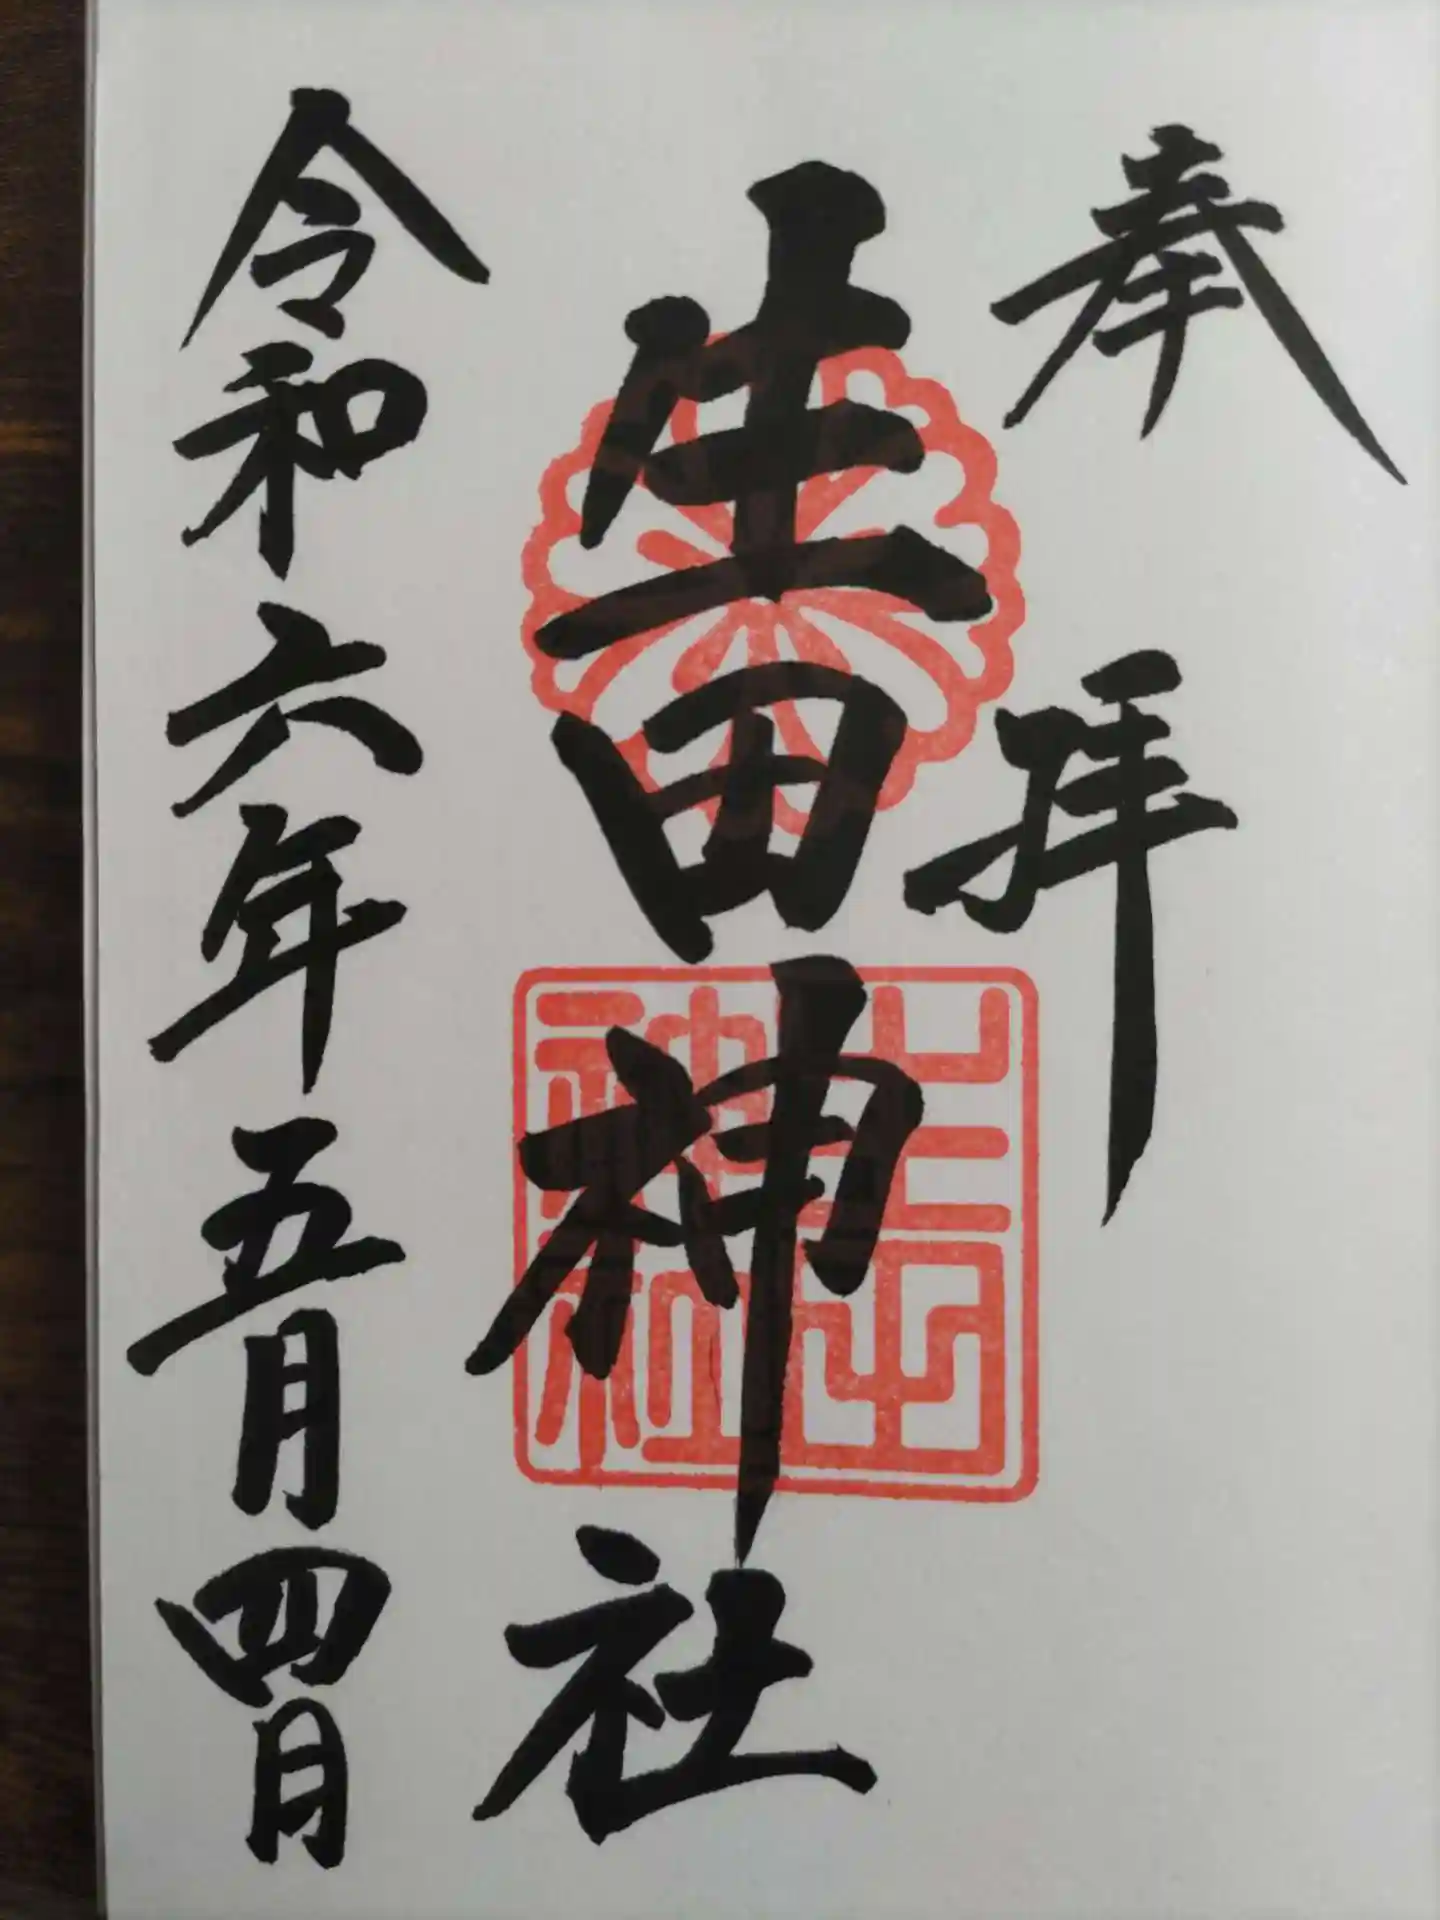 奉拝
生田神社
生田神社
令和六年五月四日